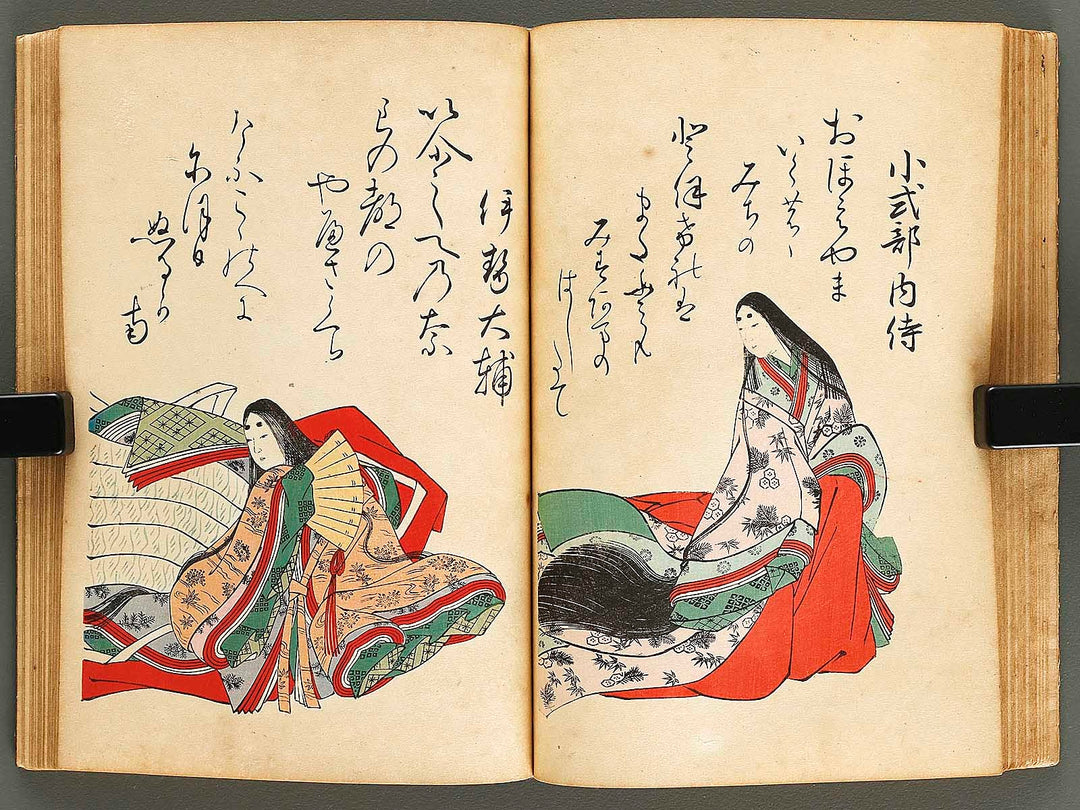 小式部内侍
おほえやま
いくのゝ
みちの
登保希礼は
またふみも
みすあまの
はしたて
伊勢大輔
いにしへ乃奈
らの都の
やへさくら
けふこゝのへに
尓ほ日
ぬるか
南